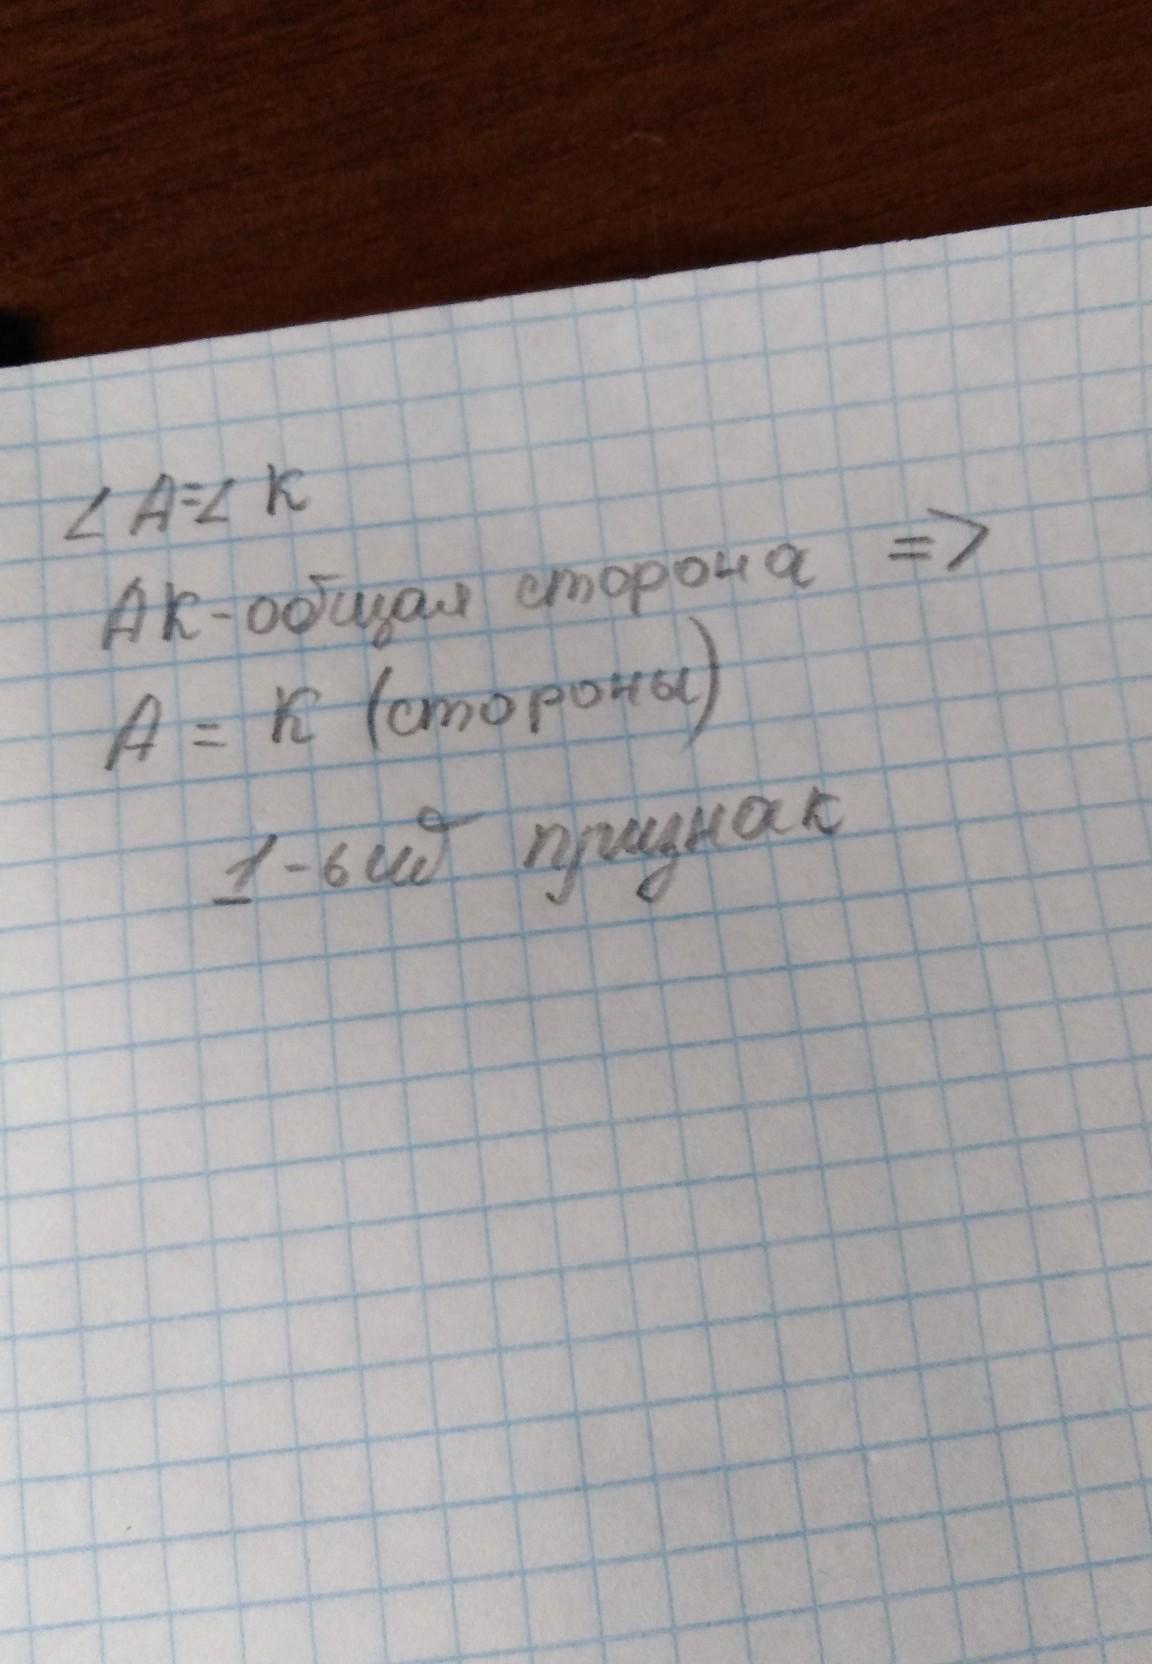 ∠ A=∠ К
АК-общая сторона =>
А = К (стороны)
1-ый признак